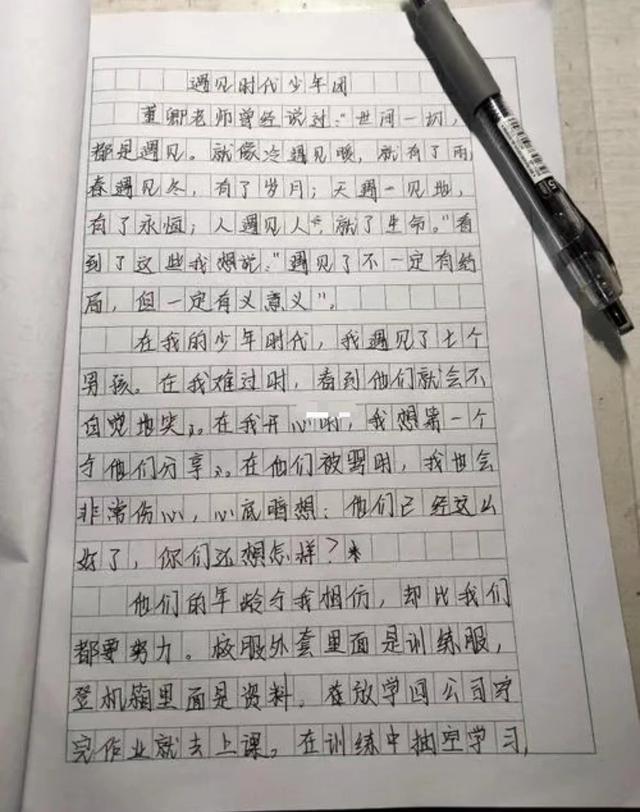 遇见时代少年团
董卿老师曾经说过:“世间一切,
都是遇见。就像冷遇见暖,就有了雨,
春遇见冬,有了岁月;天遇一见地,
有了永恒;人遇见人,就了生命。”看
到了这些我想说:“遇见了不一定有结
局,但一定有义意义”。
在我的少年时代,我遇见了七个
男孩。在我难过时,看到他们就会不
自觉地笑。在我开心时,我想第一个
与他们分享。在他们被骂时,我也会
非常伤心,心底暗想:他们已经这么
好了,你们还想怎样?
他们的年龄与我相仿,却比我们
都要努力。校服外套里面是训练服,
登机箱里面是资料。在放学回公司写
完作业就去上课。在训练中抽空学习,